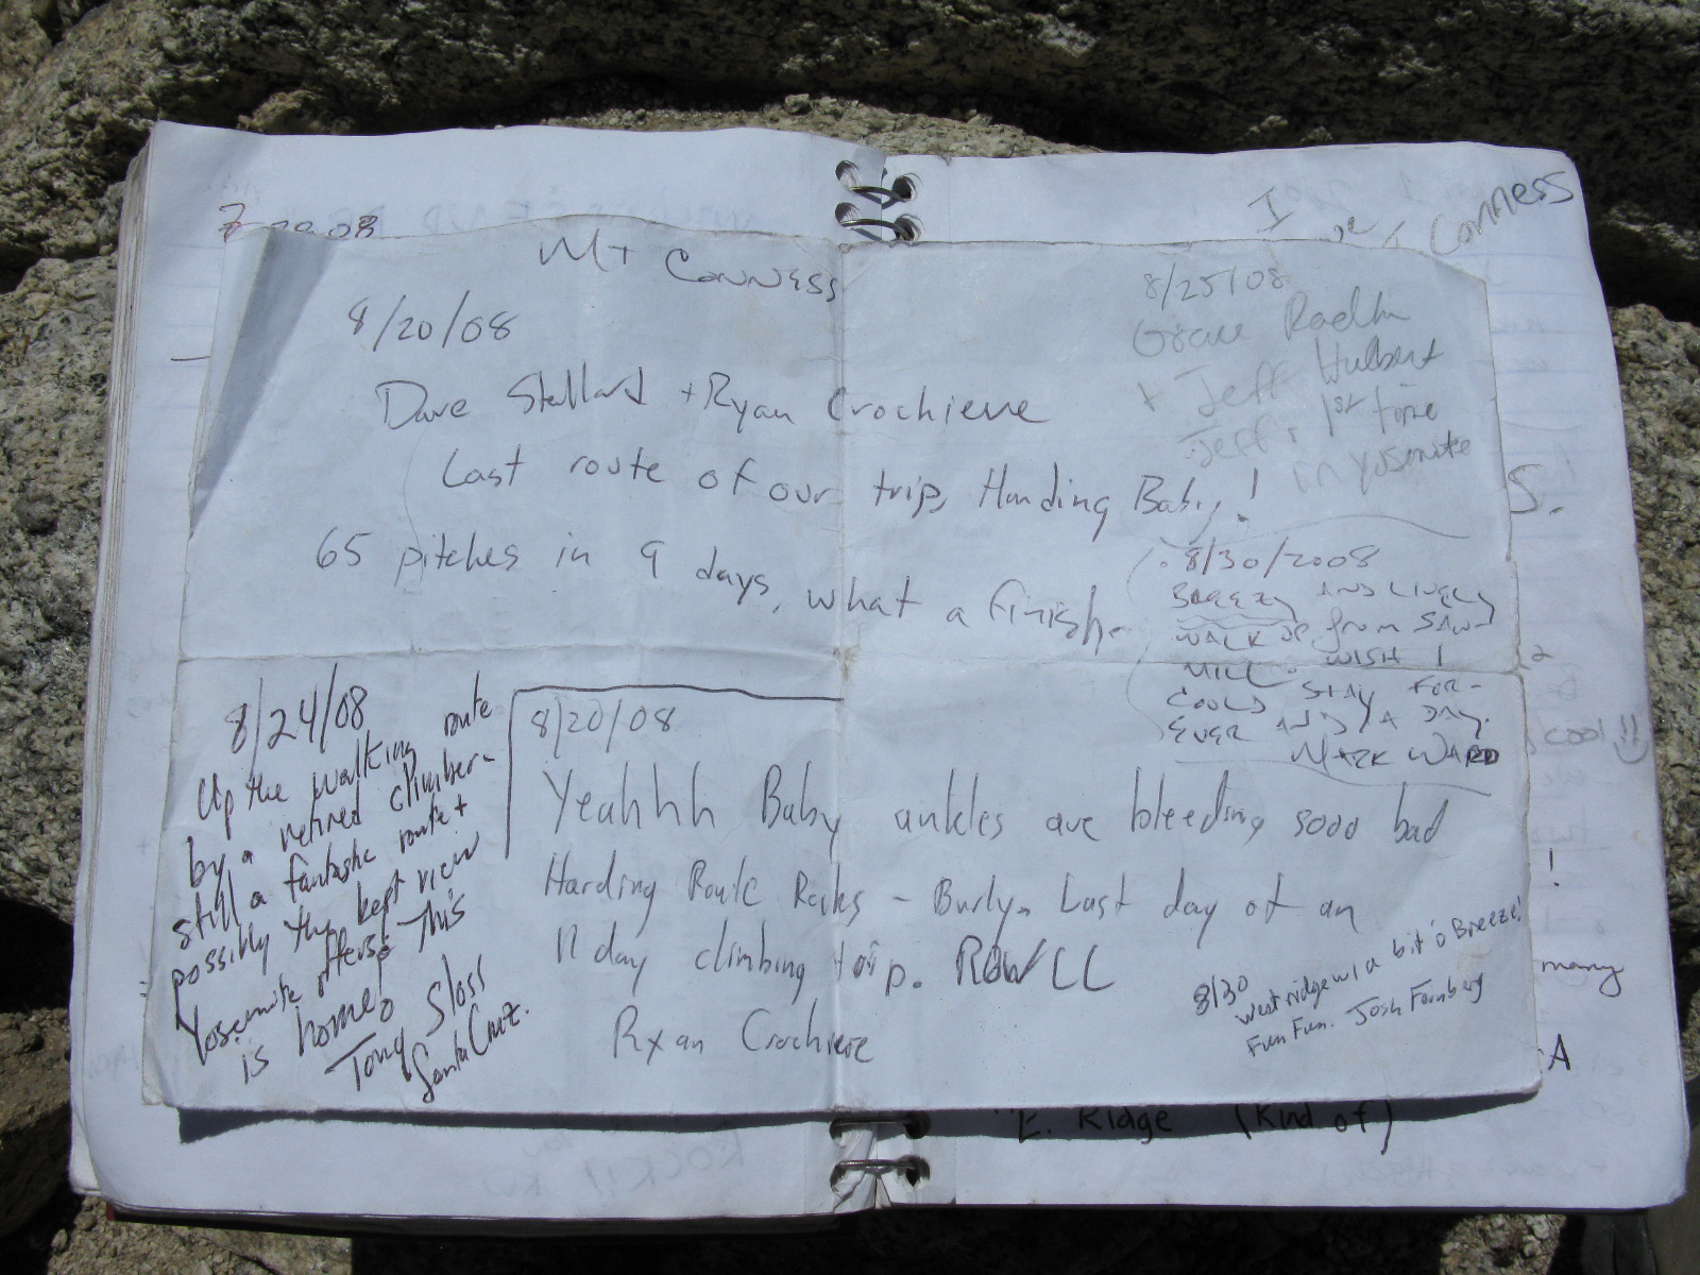 I
Conness
Mt Conness
8/20/08
Dave Stallard + Ryan Crochiere
Last route of our trip, Harding Baby!
65 pitches in 9 days, what a finish.
8/25/08
Grace
+ Jeff Hulbert
Jeff's 1st time
in Yosemite
8/30/2008
BREEZY AND LIVELY
WALK UP from SAW
MILL. WISH I
COULD STAY FOR-
EVER AND A DAY.
MARK WARD
8/24/08
Up the walking route
by a retired climber -
still a fantastic route +
possibly the best view
Yosemite offers. This
is home.
Tony Sloss
Santa Cruz.
8/20/08
Yeahhh Baby ankles are bleeding sooo bad
Harding Route Rocks - Burly. Last day of an
11 day climbing trip.
Ryan Crochiere
8/30
West ridge w/ a bit o' Breeze!
Fun Fun. Josh Fornberg
S.
cool!!
!
many
A
E. Ridge (Kind of)